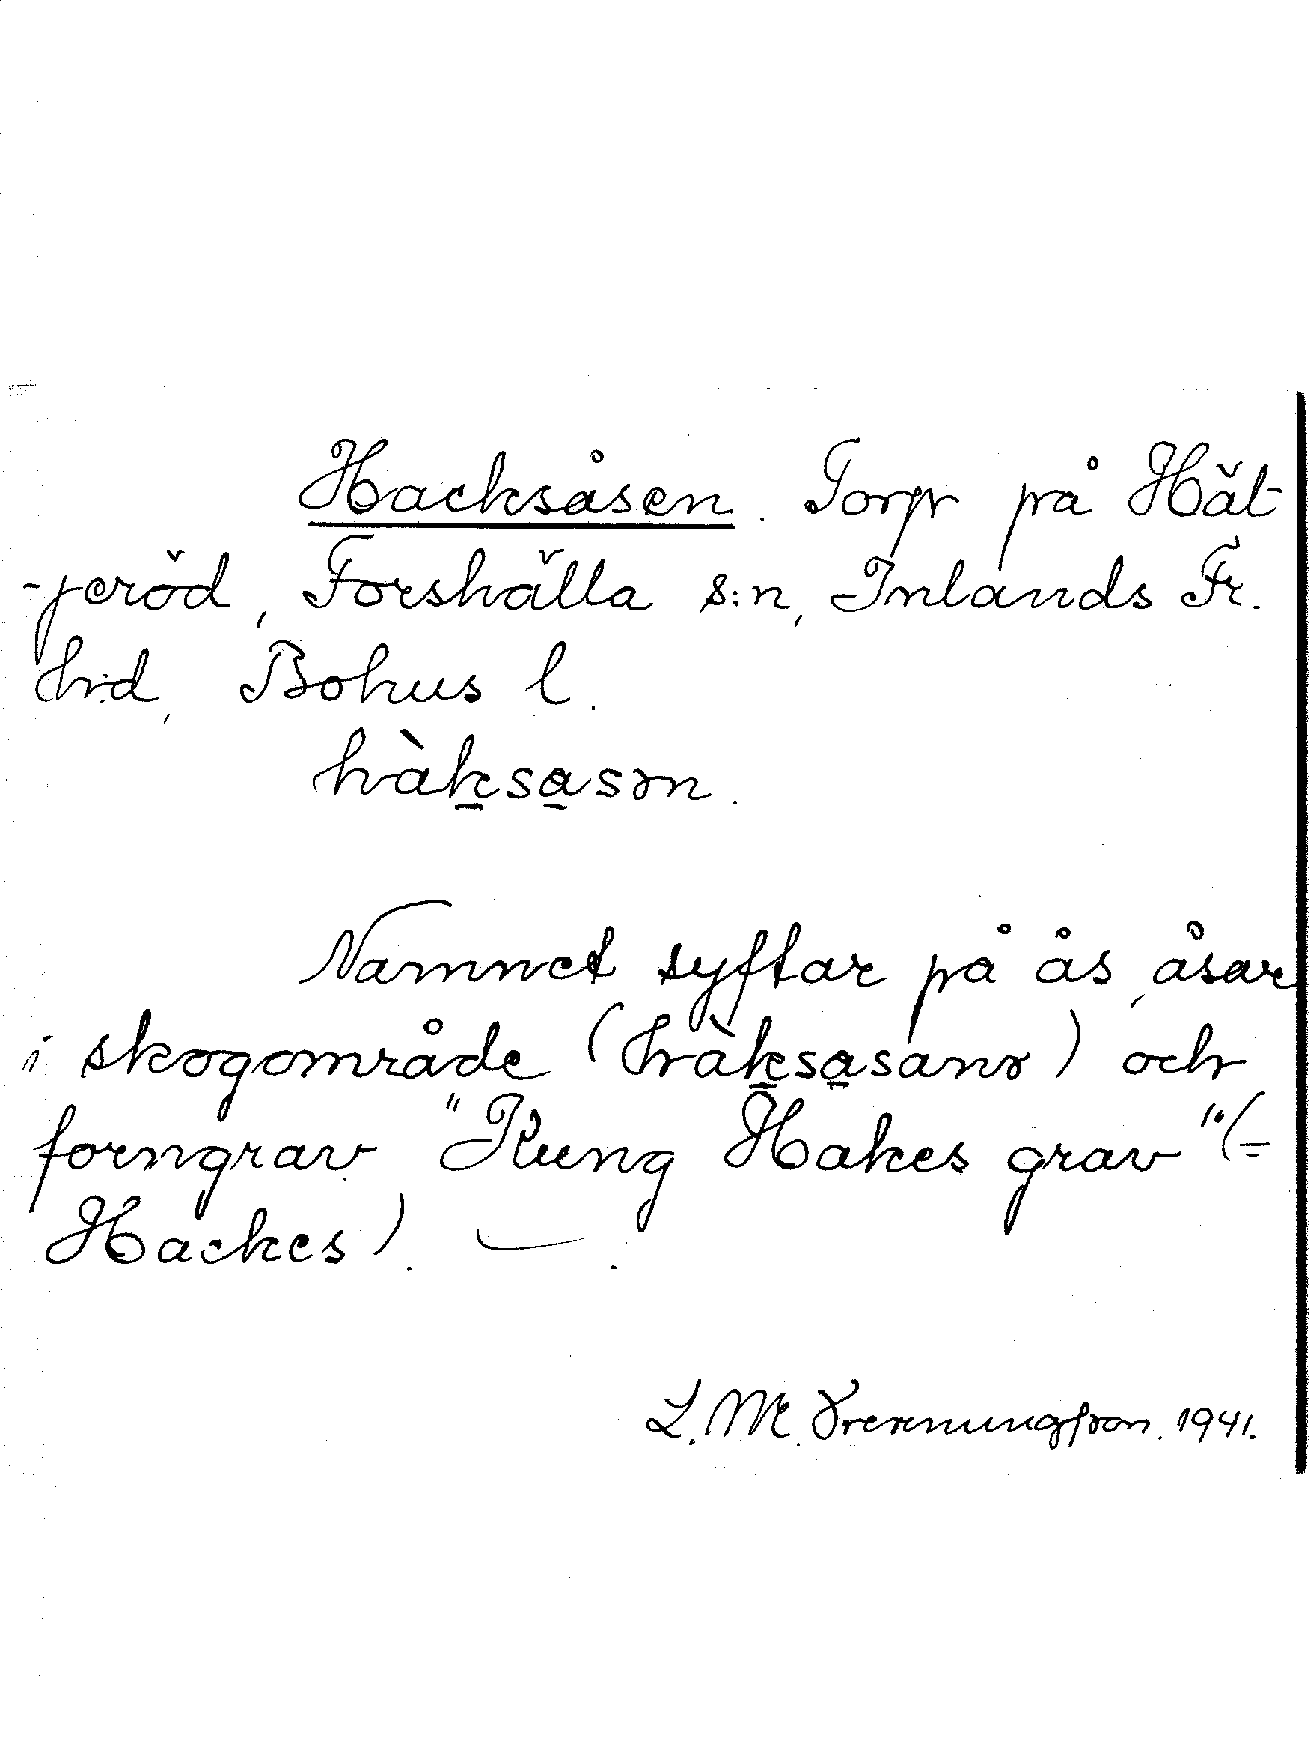 Hacksåsen. Torp på Hät-
-jeröd, Forshälla s:n, Inlands Fr.
hrd, Bohus l.
hàk̲sa̲sən.
Namnet syftar på ås, åsar
i skogområde (hàk̲sa̲sanə) och
forngrav "Kung Hakes grav" (=
Hackes). —.
L. M. 1941.